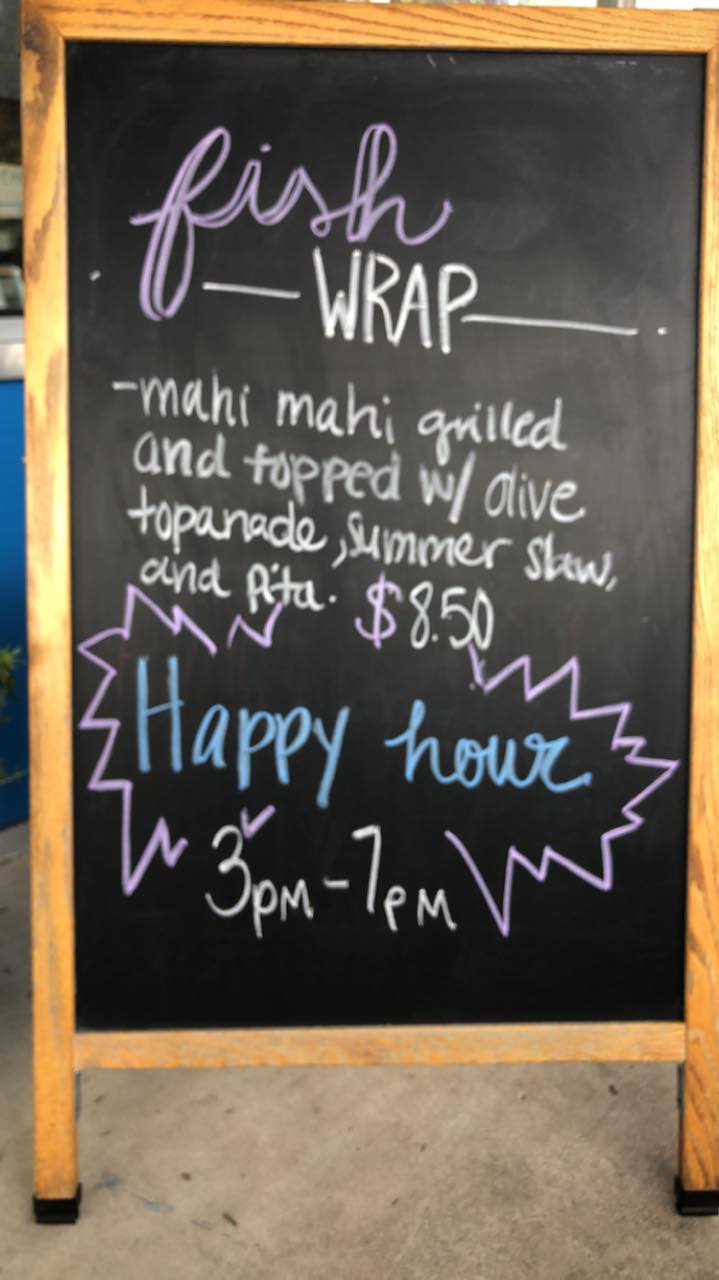 fish
WRAP
-mahi mahi grilled
and topped w/ olive
topanade, summer slaw,
and pita. $8.50
Happy hour
3pm-7pm